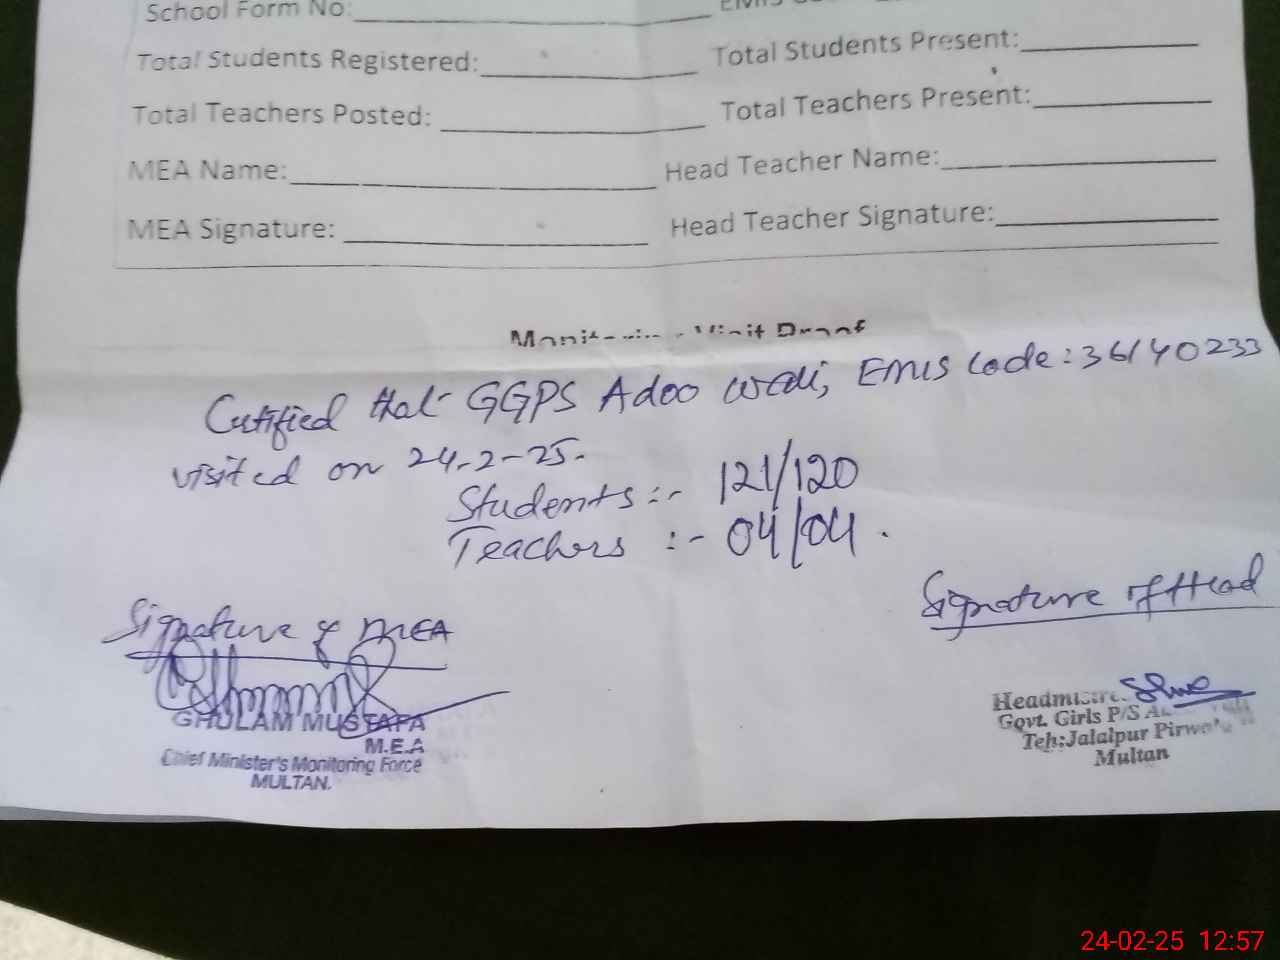 School Form No:
Total Students Registered: Total Students Present:
Total Teachers Posted: Total Teachers Present:
MEA Name: Head Teacher Name:
MEA Signature: Head Teacher Signature:
Monitoring Visit Proof
Certified that GGPS Adoo Wali, EMIS Code: 36140233
visited on 24-2-25.
Students :- 121/120
Teachers :- 04/04.
Signature of MEA
Signature of Head
GHULAM MUSTAFA
M.E.A
Chief Minister's Monitoring Force
MULTAN.
Govt. Girls P/S
Teh:Jalalpur
Multan
24-02-25 12:57